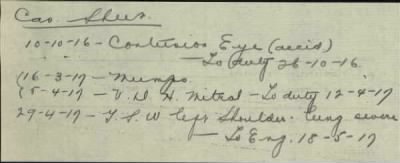 Cas. Sheet.
10-10-16 - Contusion Eye (accid)
- To duty 26-10-16.
(16-3-17 - Mumps.
(5-4-17 - V.D.H. Mitral - To duty 12-4-17
29-4-17 - G.S.W left Shoulder. lung severe
- To Eng. 18-5-17